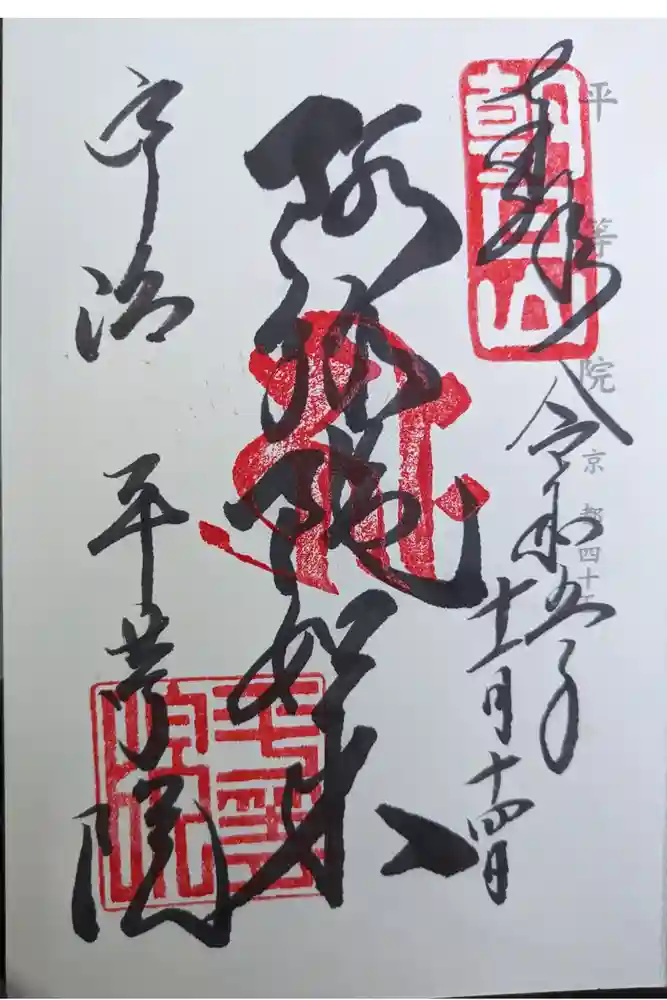 平等院 京都四十
朝日山
奉拝
令和五年
十一月十四日
阿弥陀如来
宇治 平等院
平等院